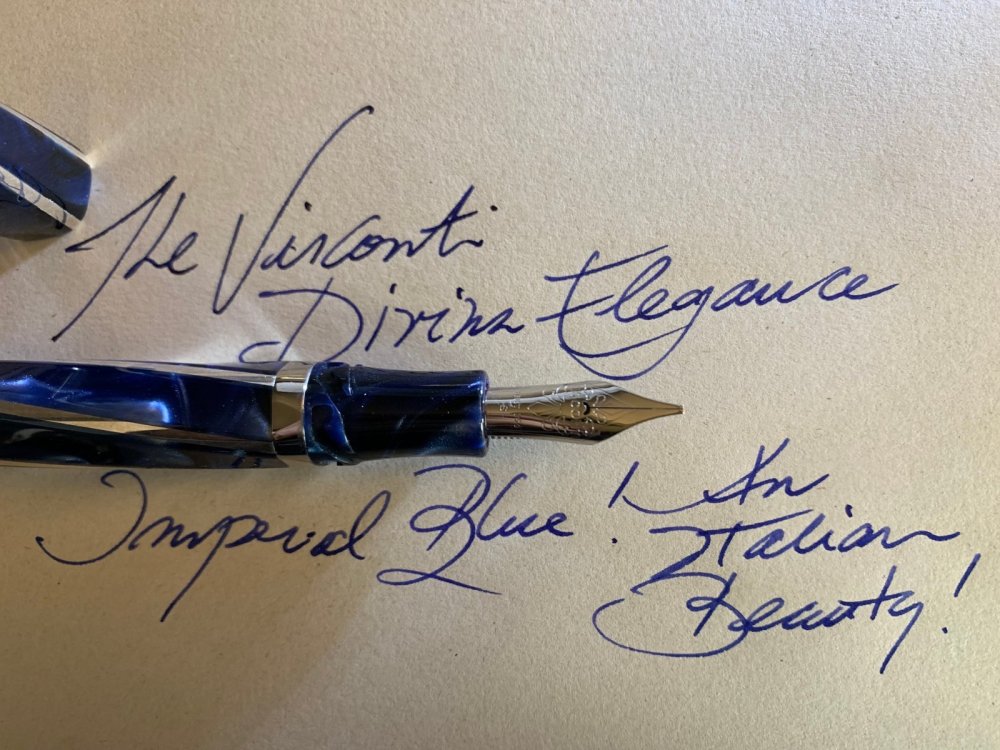 The Visconti
Divina Elegance
Imperial Blue! An
Italian
Beauty!